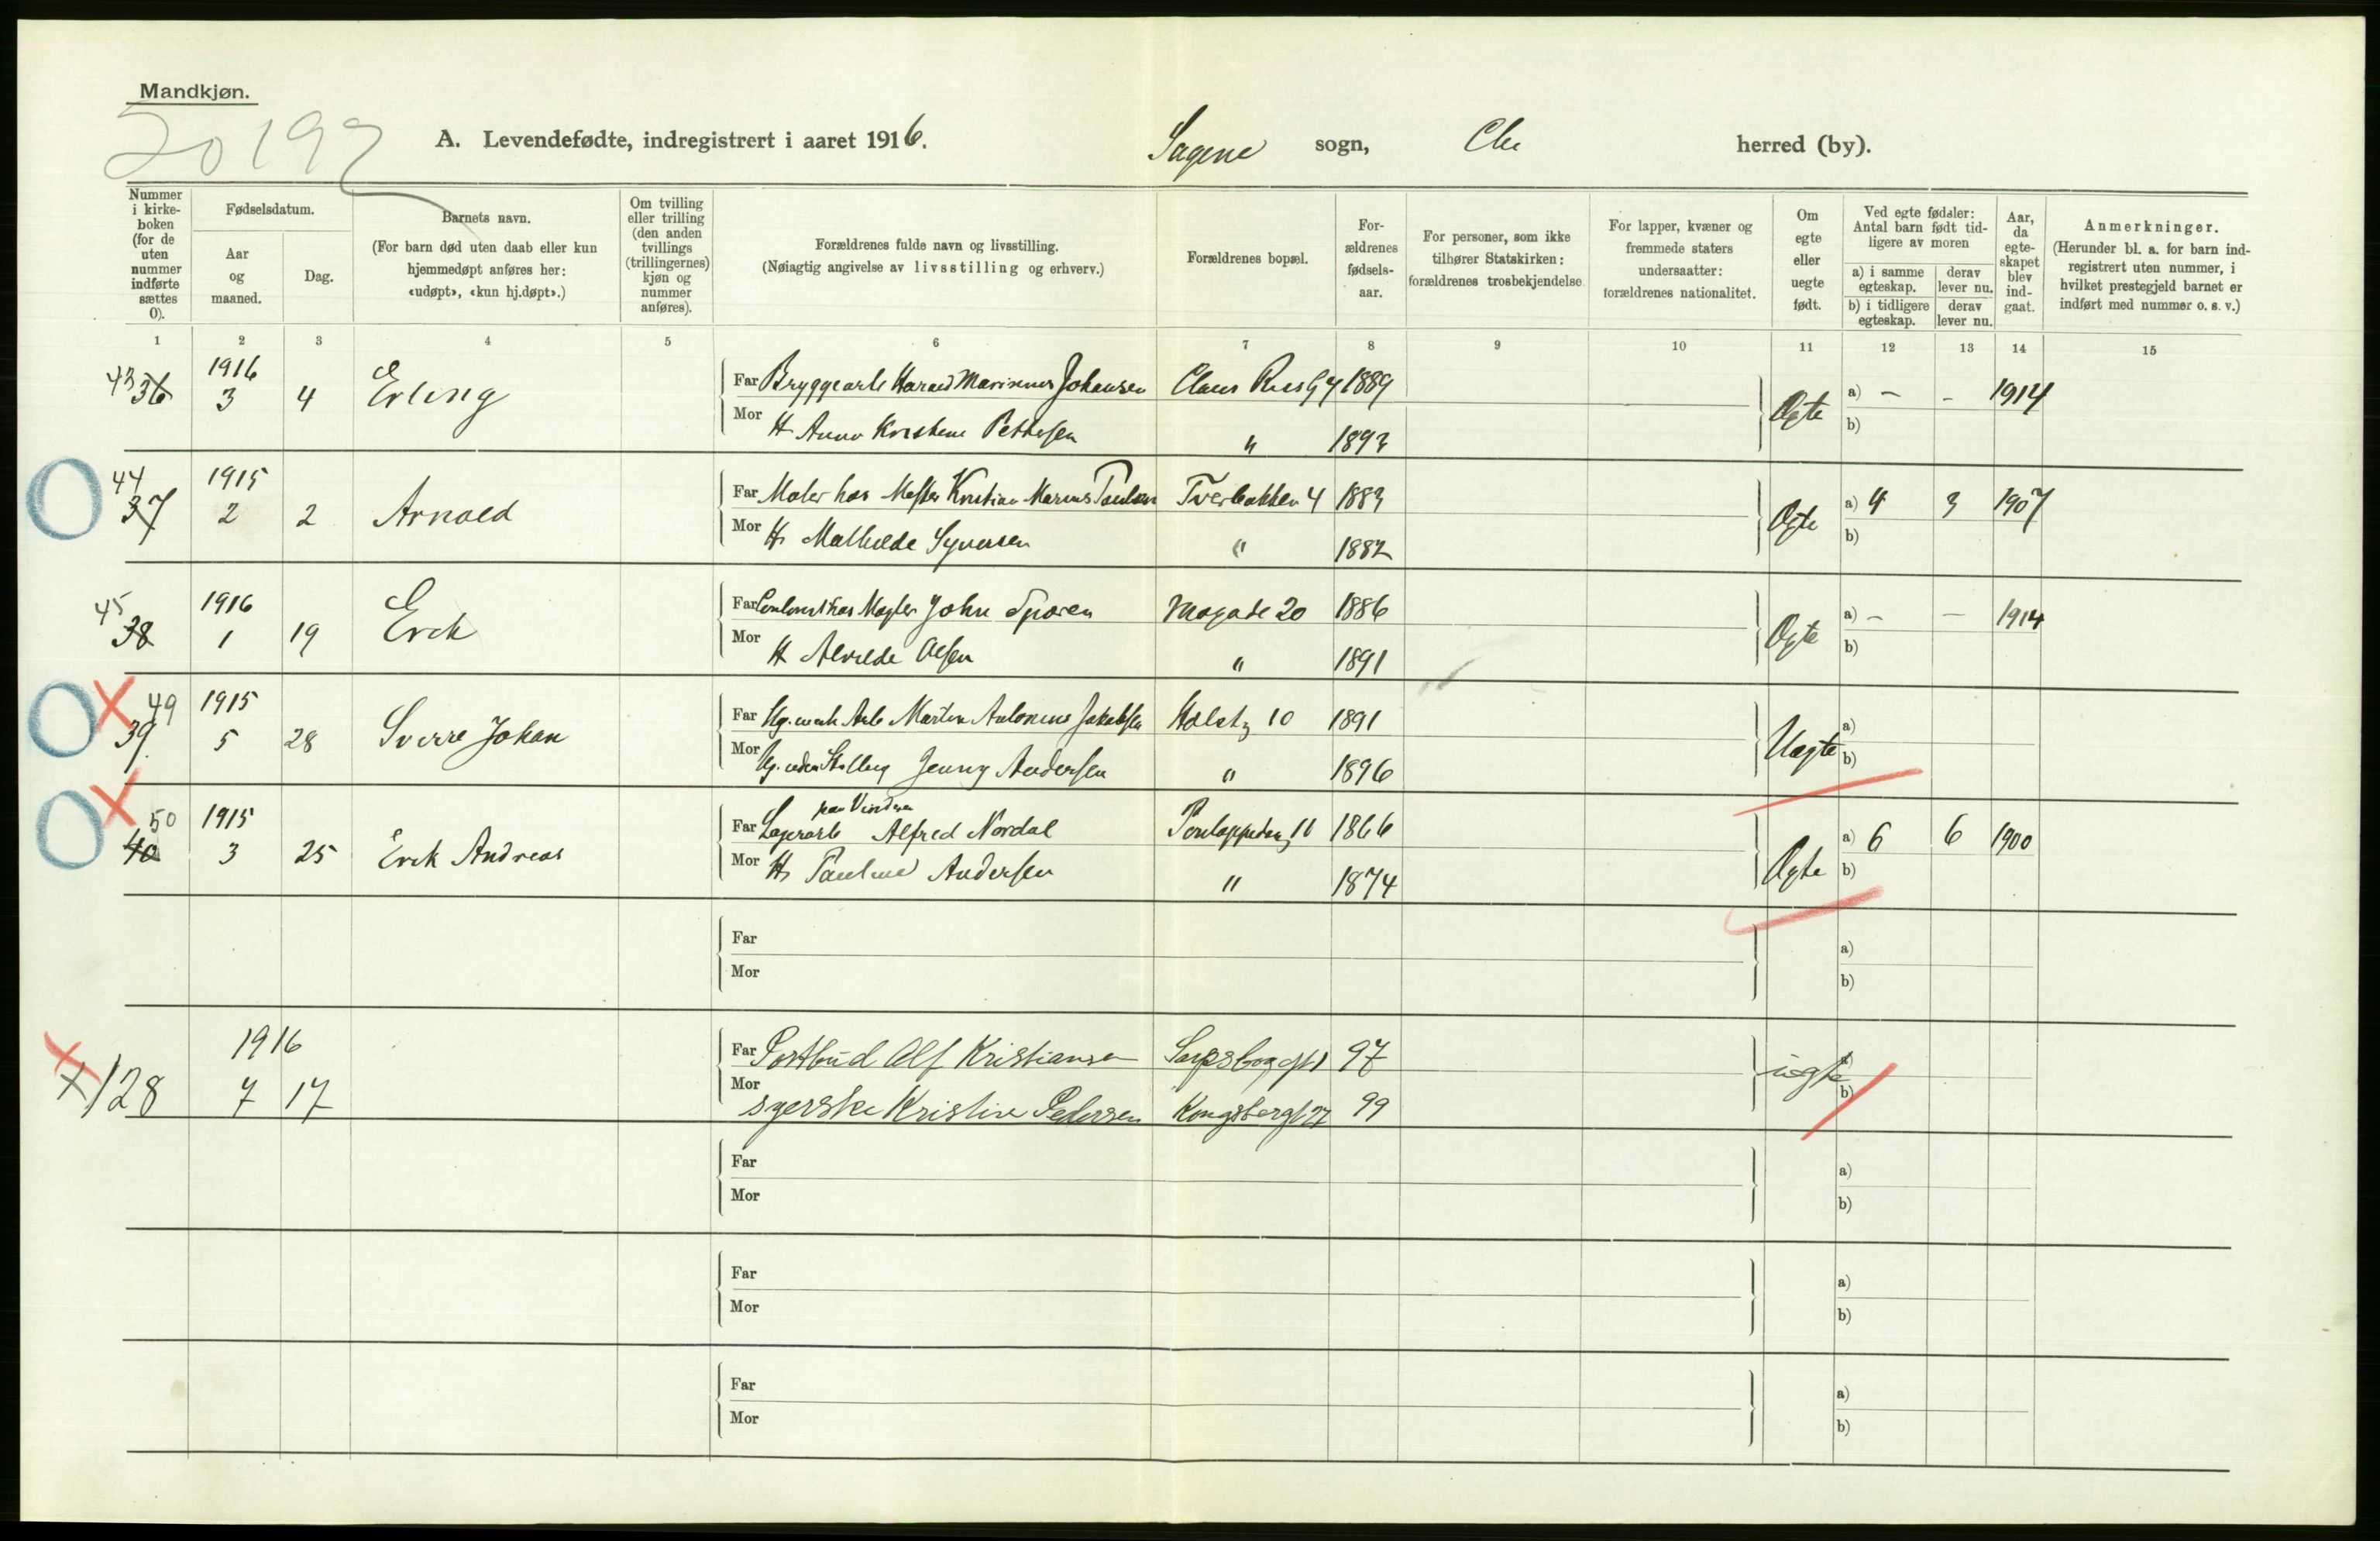 Mandkjøn.
20197
A. Levendefødte, indregistrert i aaret 1916. Sagene sogn, Chr herred (by).
Nummer i kirkeboken (for de uten nummer indførte sættes 0).
Fødselsdatum.
Aar og maaned.
Dag.
Barnets navn.
(For barn død uten daab eller kun hjemmedøpt anføres her: «udøpt», «kun hj.døpt».)
Om tvilling eller trilling (den anden tvillings (trillingernes) kjøn og nummer anføres).
Forældrenes fulde navn og livsstilling.
(Nøiagtig angivelse av livsstilling og erhverv.)
Forældrenes bopæl.
Forældrenes fødselsaar.
For personer, som ikke tilhører Statskirken: forældrenes trosbekjendelse.
For lapper, kvæner og fremmede staters undersaatter: forældrenes nationalitet.
Om egte eller uegte født.
Ved egte fødsler: Antal barn født tidligere av moren
a) i samme egteskap.
b) i tidligere egteskap.
derav lever nu.
derav lever nu.
Aar, da egteskapet blev indgaat.
Anmerkninger.
(Herunder bl. a. for barn indregistrert uten nummer, i hvilket prestegjeld barnet er indført med nummer o. s. v.)
1 2 3 4 5 6 7 8 9 10 11 12 13 14 15
43 36 1916 3 4 Erling Far Bryggearb Harald Marinius Johansen Claus Riis G 4 1889 Egte a) – – 1914
Mor H Anna Kristine Pettersen " 1893 b)
44 37 1915 2 2 Arnold Far Maler hos Mester Kristian Marius Paulsen Tverbakken 4 1883 Egte a) 4 3 1907
Mor H Mathilde Syversen " 1882 b)
45 38 1916 1 19 Erik Far hos Magler John Sporen Mogade 20 1886 Egte a) – – 1914
Mor H Alvilde Olsen " 1891 b)
49 39 1915 5 28 Sverre Johan Far Ug. Arb Martin Antonius Jakobsen Holstg 10 1891 Uegte a)
Mor Ug. uden Stilling Jenny Andersen " 1896 b)
50 40 1915 3 25 Erik Andreas Far Lagerarb paa Vinderen Alfred Nordal 1866 Egte a) 6 6 1900
Mor H Pauline Andersen " 1874 b)
Far a)
Mor b)
128 1916 7 17 Far Postbud Alf Kristiansen Sarpsborggt 1 97 uegte a)
Mor syerske Kristine Pedersen Kongsberggt 27 99 b)
Far a)
Mor b)
Far a)
Mor b)
Far a)
Mor b)